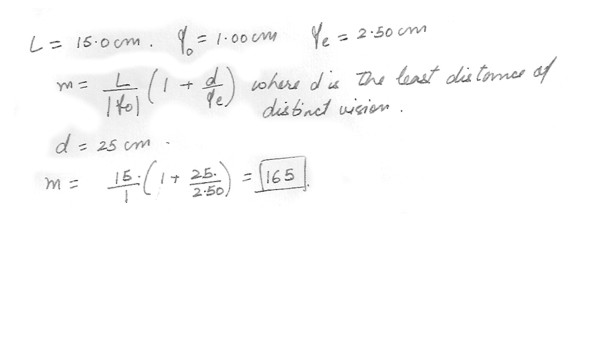 L = 15.0 cm. f₀ = 1.00 cm fe = 2.50 cm
m = L/|f₀| (1 + d/fe) where d is the least distance of
distinct vision.
d = 25 cm.
m = 15./1 (1 + 25./2.50) = 165.